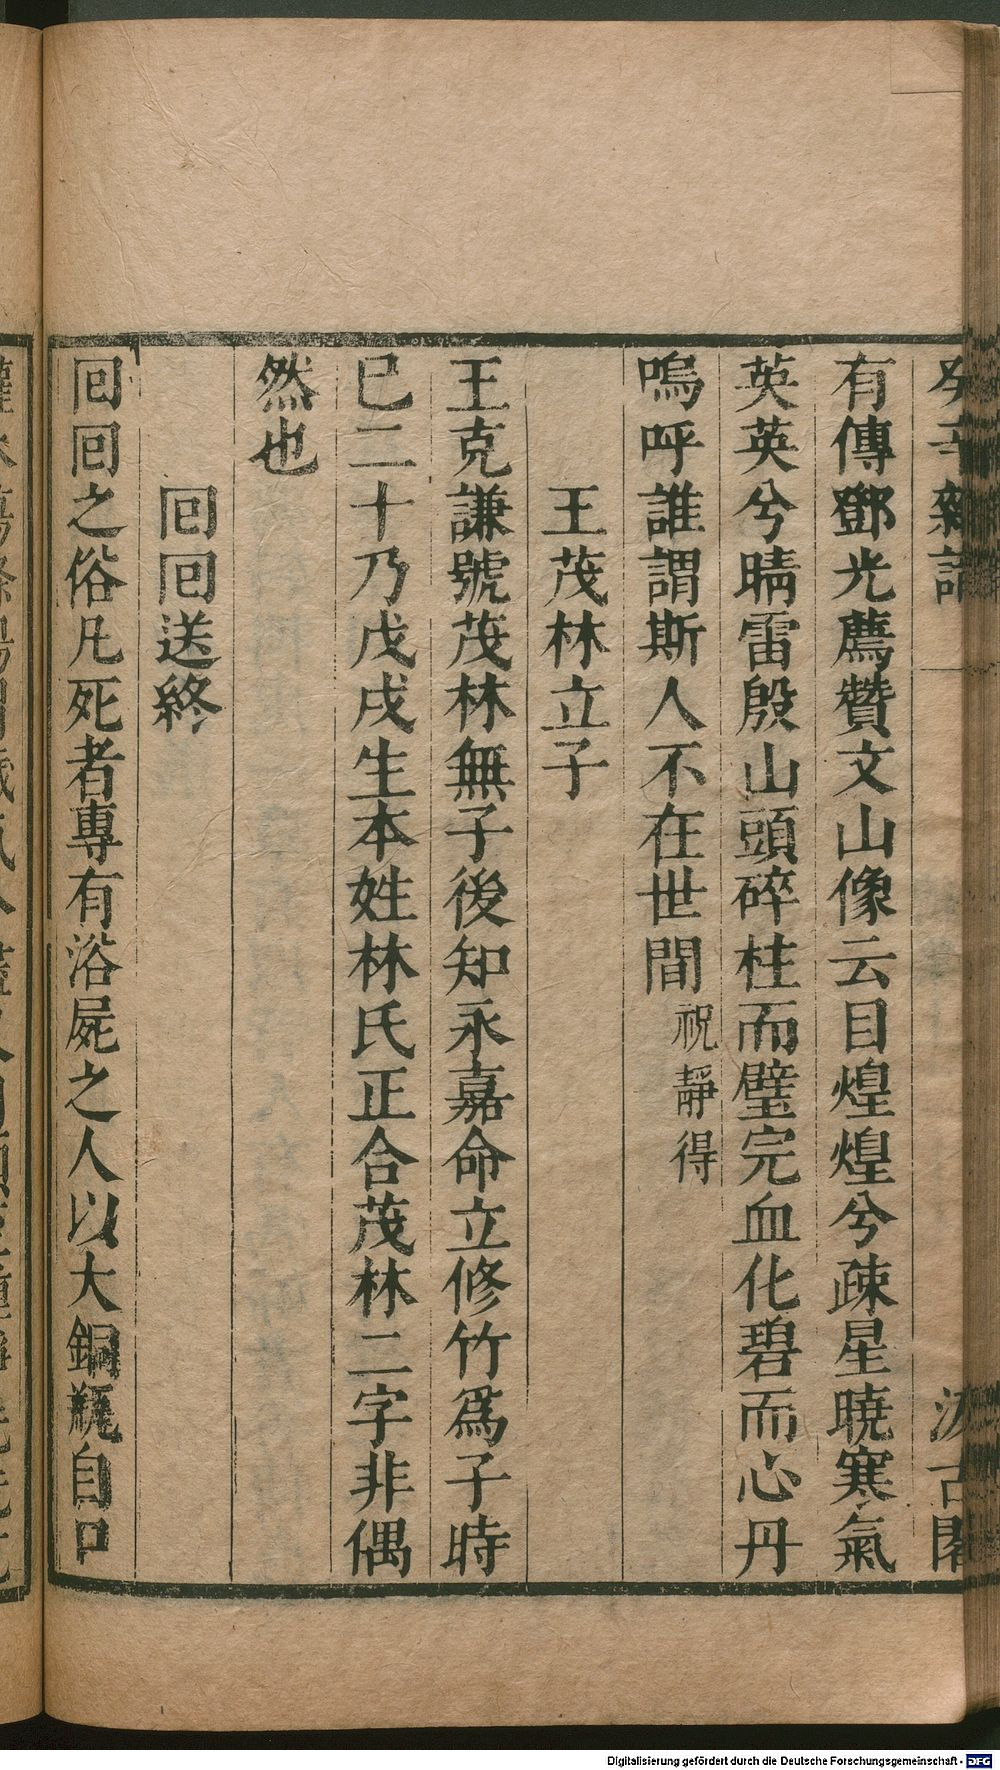 癸辛雜識
汲古閣
有傳鄧光薦贊文山像云目煌煌兮疎星曉寒氣
英英兮晴雷殷山頭碎柱而璧完血化碧而心丹
嗚呼誰謂斯人不在世間祝靜得
王茂林立子
王克謙號茂林無子後知永嘉命立修竹爲子時
已二十乃戊戌生本姓林氏正合茂林二字非偶
然也
回回送終
回回之俗凡死者專有浴屍之人以大銅瓶自口
Digitalisierung gefördert durch die Deutsche Forschungsgemeinschaft - DFG